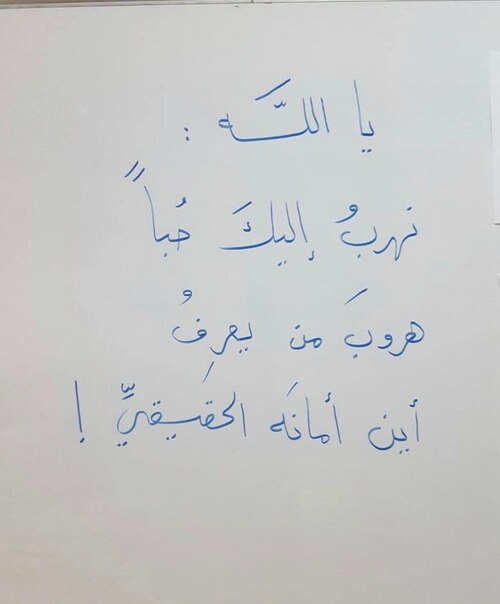 يا اللّه :
نهربُ إليكَ حُباً
هروبَ من يعرِفُ
أين أمانَه الحقيقيِّ !